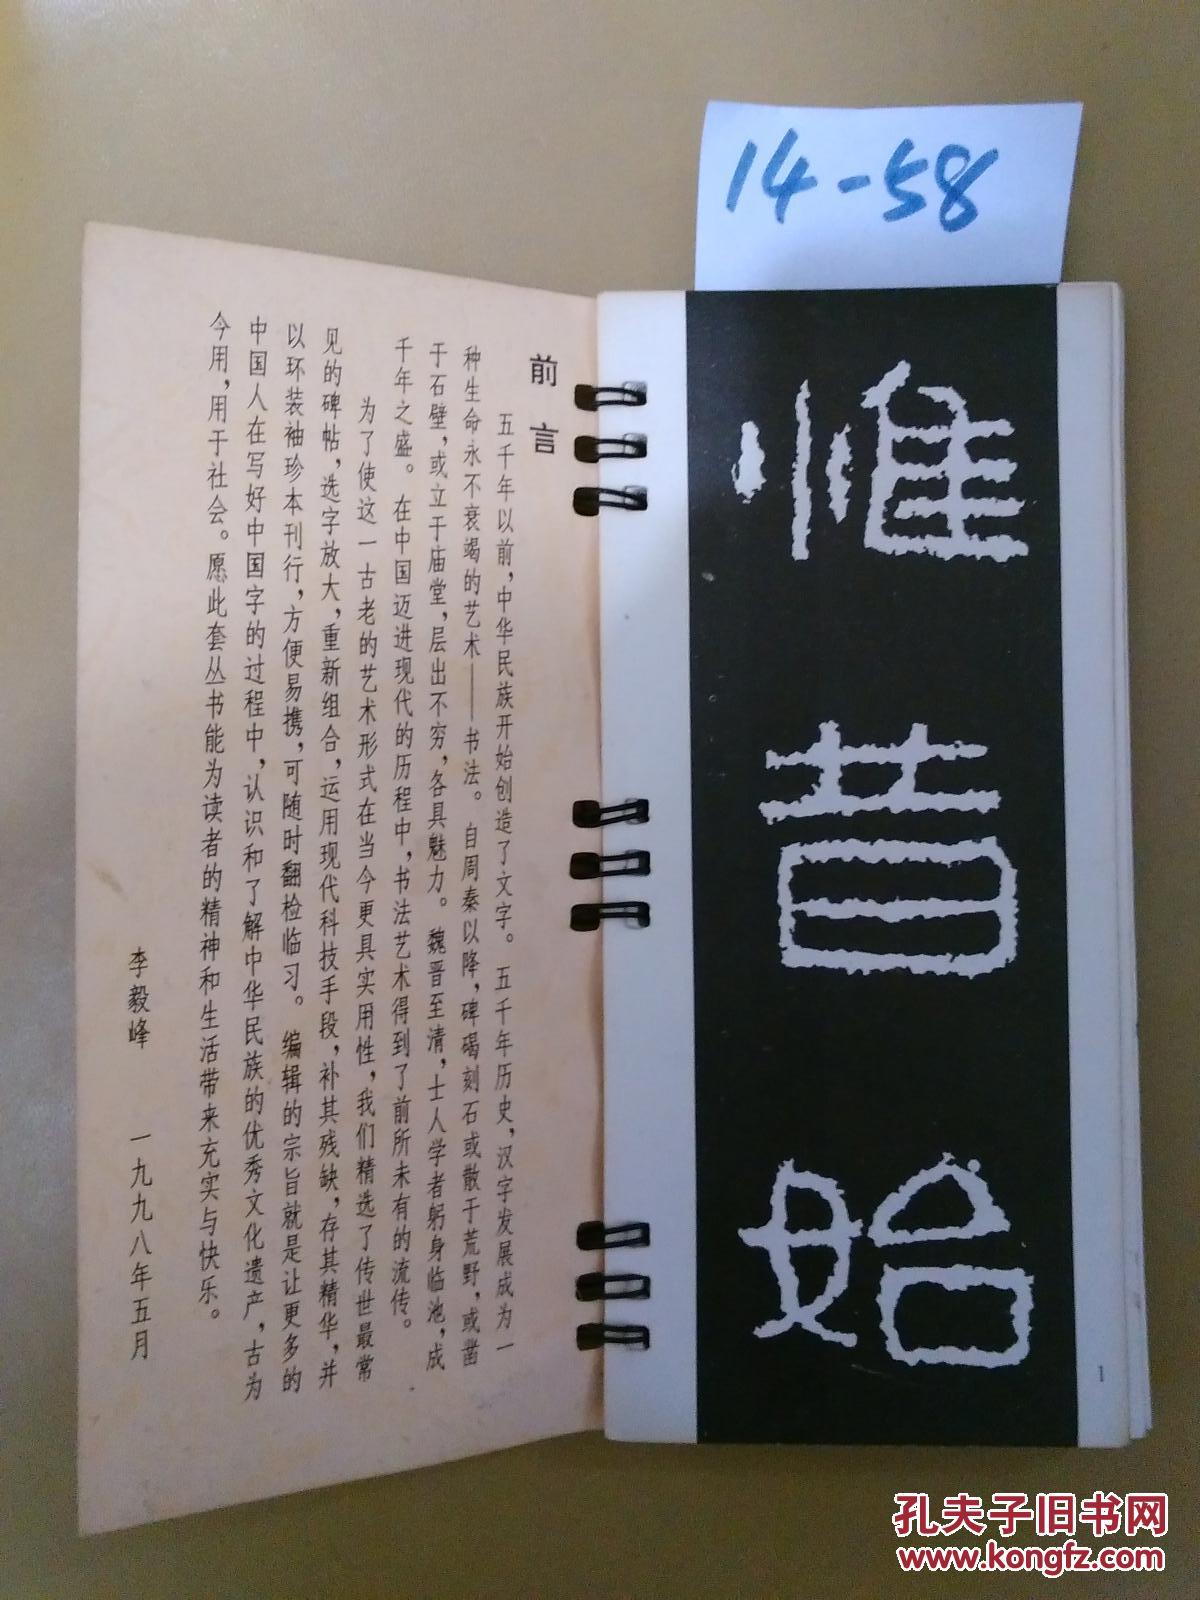 14-58
前言
五千年以前，中华民族开始创造了文字。五千年历史，汉字发展成为一
种生命永不衰竭的艺术——书法。自周秦以降，碑碣刻石或散于荒野，或凿
于石壁，或立于庙堂，层出不穷，各具魅力。魏晋至清，士人学者躬身临池，成
千年之盛。在中国迈进现代的历程中，书法艺术得到了前所未有的流传。
为了使这一古老的艺术形式在当今更具实用性，我们精选了传世最常
见的碑帖，选字放大，重新组合，运用现代科技手段，补其残缺，存其精华，并
以环装袖珍本刊行，方便易携，可随时翻检临习。编辑的宗旨就是让更多的
中国人在写好中国字的过程中，认识和了解中华民族的优秀文化遗产，古为
今用，用于社会。愿此套丛书能为读者的精神和生活带来充实与快乐。
李毅峰 一九九八年五月
惟昔始
1
孔夫子旧书网
www.kongfz.com